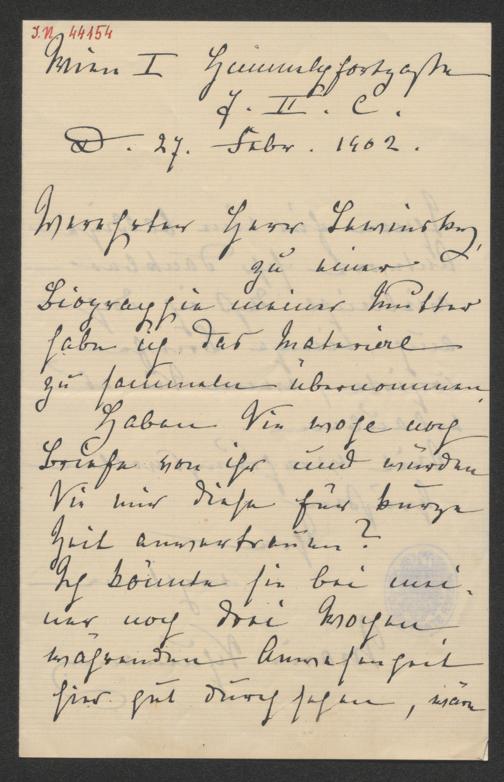 J.N. 44154
Wien I Himmelpfortgasse
7. II. C.
D. 27. Febr. 1902.
Verehrter Herr Lewinsky,
zu einer
Biographie meiner Mutter
habe ich das Material
zu sammeln übernommen.
Haben Sie wohl noch
Briefe von ihr und würden
Sie mir diese für kurze
Zeit anvertrauen?
Ich könnte sie bei mei-
ner noch drei Wochen
währenden Anwesenheit
hier gut durchsehen, wäre